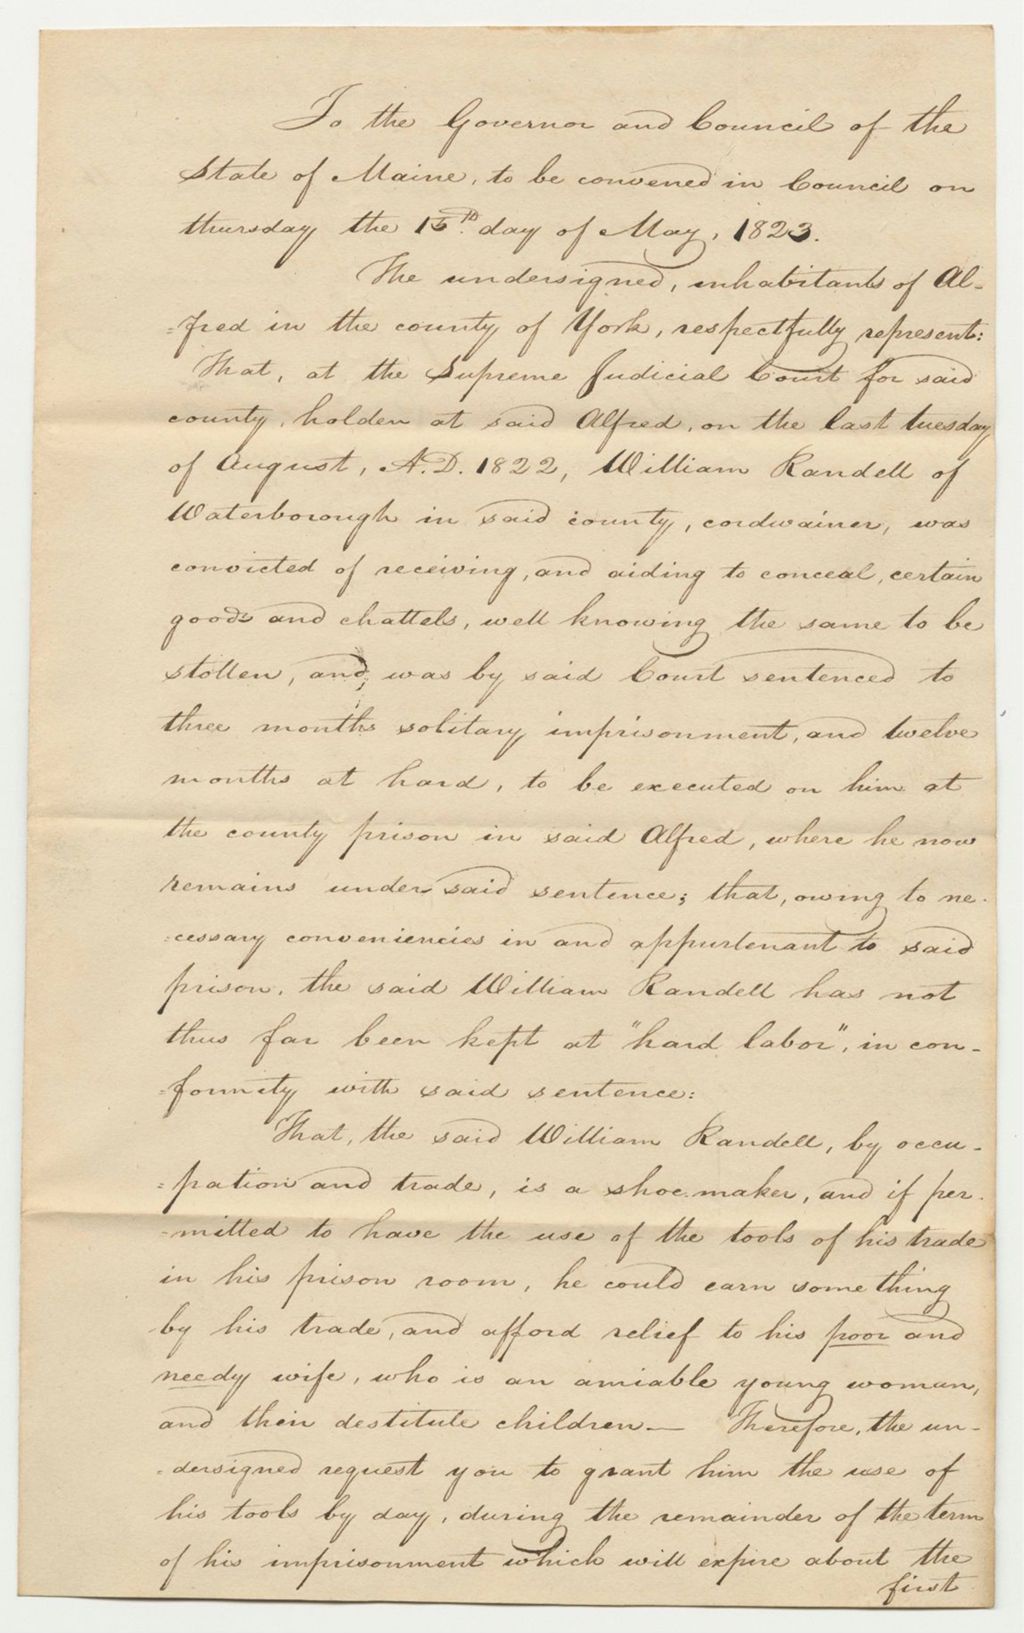 To the Governor and Council of the
State of Maine, to be convened in Council on
thursday the 15th day of May, 1823.
The undersigned, inhabitants of Al-
=fred in the county of York, respectfully represent:
That, at the Supreme Judicial Court for said
county, holden at said Alfred, on the last tuesday
of August, A.D. 1822, William Randell of
Waterborough in said county, cordwainer, was
convicted of receiving, and aiding to conceal, certain
goods and chattels, well knowing the same to be
stollen, and, was by said Court sentenced to
three months solitary imprisonment, and twelve
months at hard, to be executed on him at
the county prison in said Alfred, where he now
remains under said sentence; that, owing to ne-
=cessary conveniencies in and appurtenant to said
prison, the said William Randell has not
thus far been kept at "hard labor", in con-
=formity with said sentence:
That, the said William Randell, by occu-
=pation and trade, is a shoe maker, and if per-
=mitted to have the use of the tools of his trade
in his prison room, he could earn some thing
by his trade, and afford relief to his poor and
needy wife, who is an amiable young woman,
and their destitute children — Therefore, the un-
=dersigned request you to grant him the use of
his tools by day, during the remainder of the term
of his imprisonment which will expire about the
first